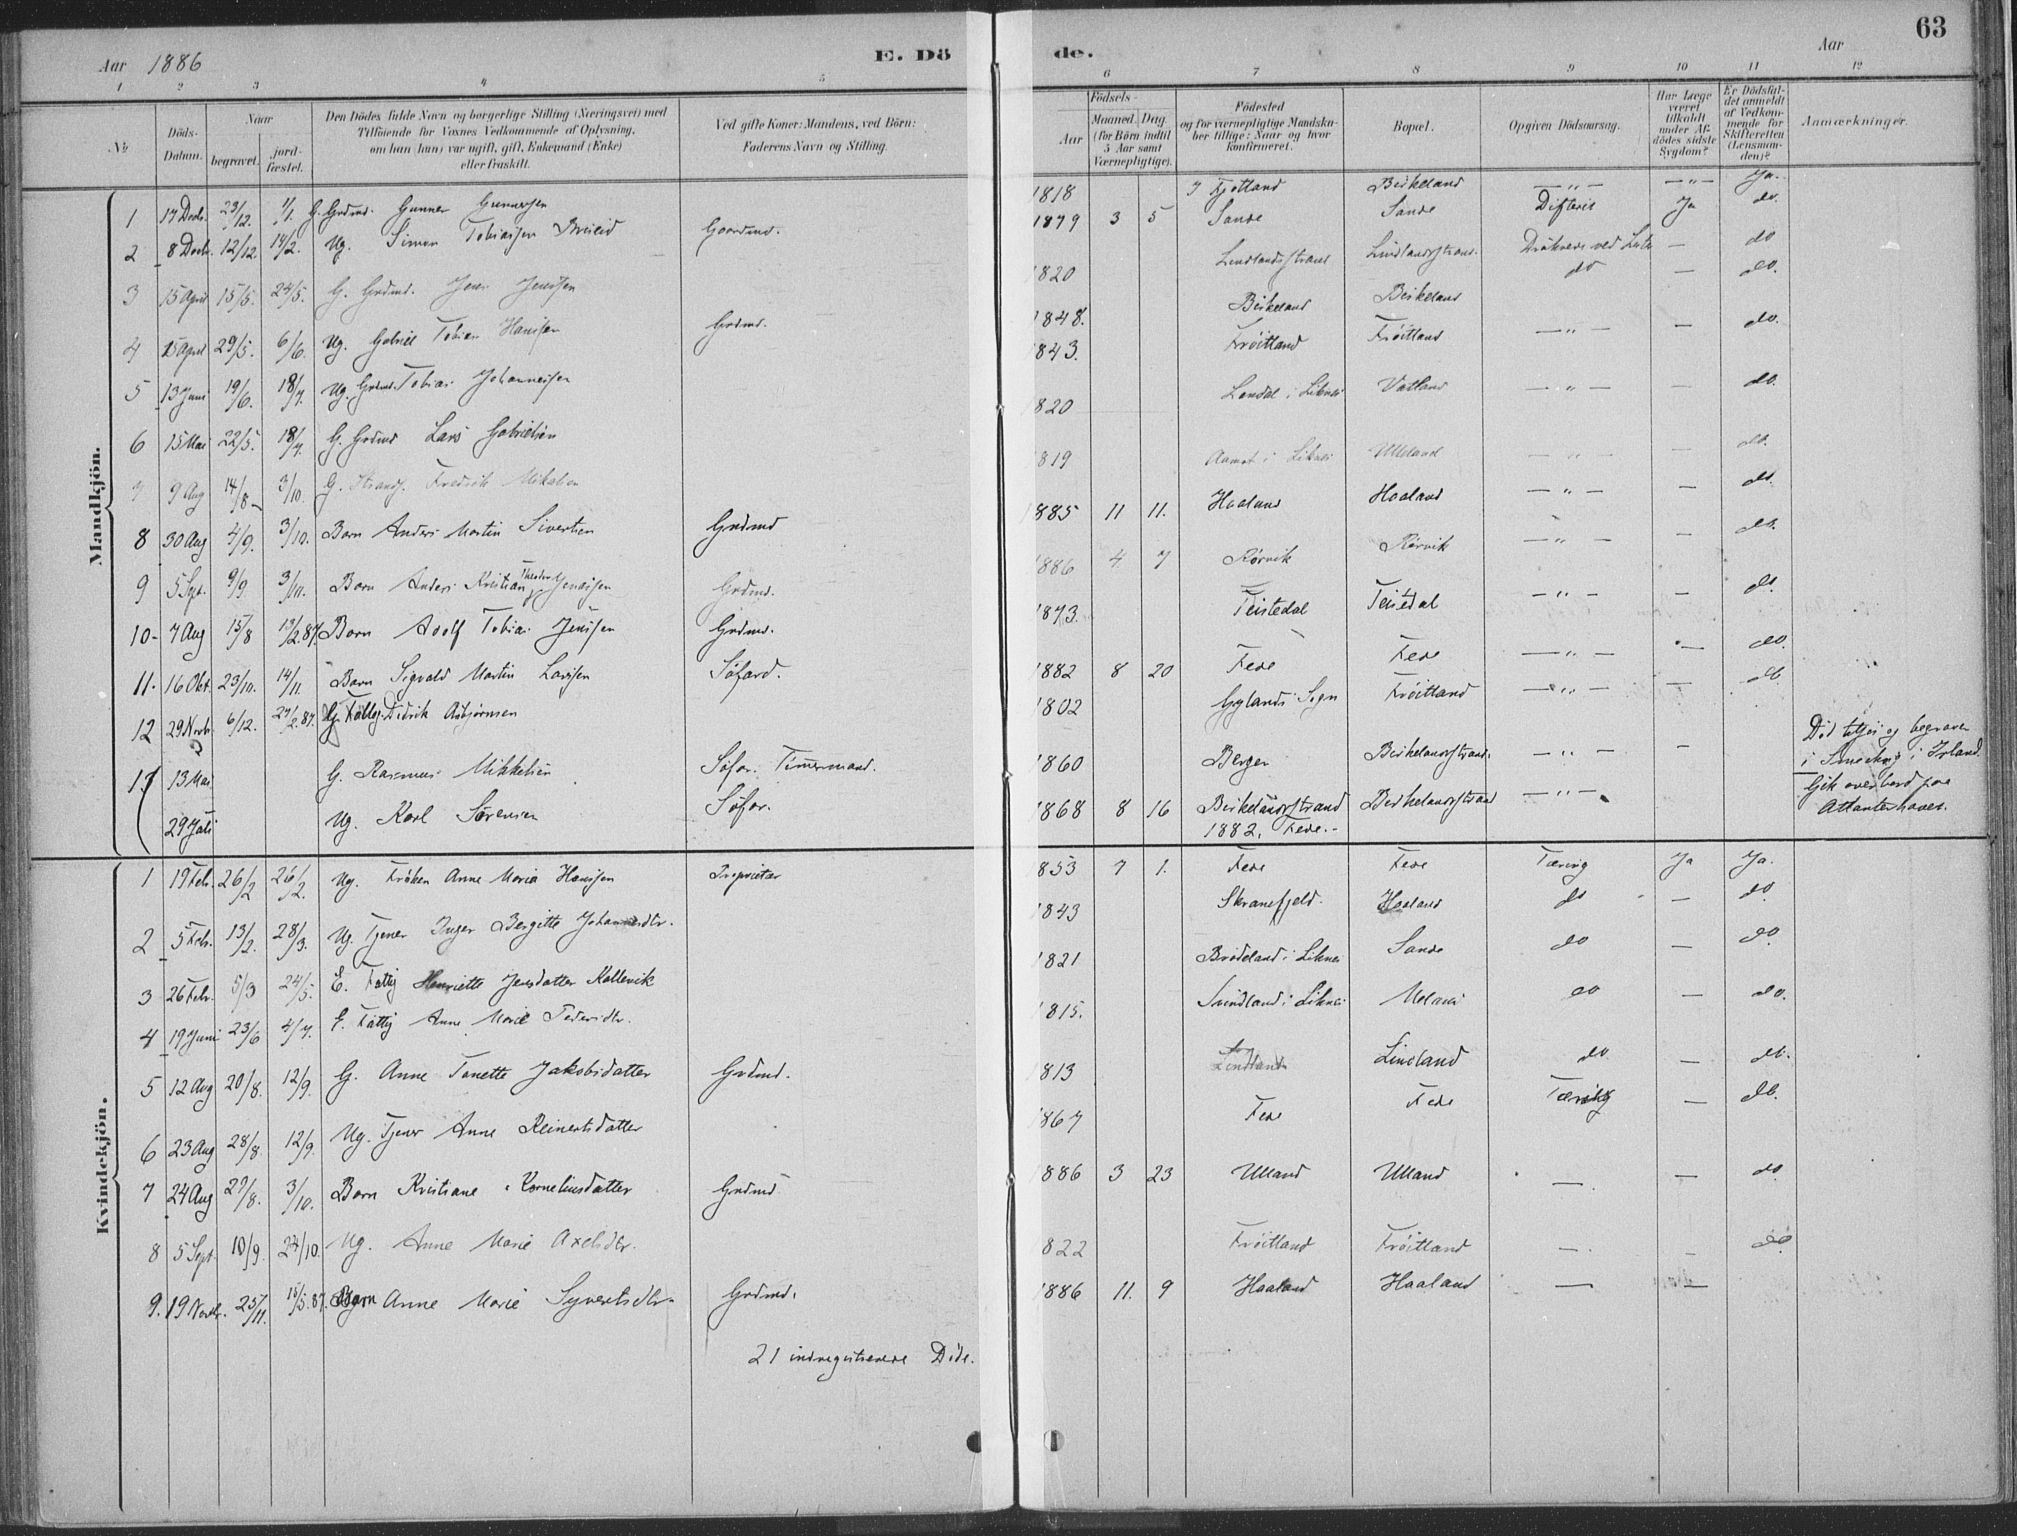 63
Aar 1886 E. Dö de. Aar
1 2 3 4 5 6 7 8 9 10 11 12
№
Döds-
Datum.
Naar
begravet.
jord-
fæstet.
Den Dödes fulde Navn og borgerlige Stilling (Næringsvei) med
Tilföiende for Voxnes Vedkommende af Oplysning,
om han (hun) var ugift, gift, Enkemand (Enke)
eller fraskilt.
Ved gifte Koner: Mandens, ved Börn:
Faderens Navn og Stilling.
Födsels-
Aar
Maaned. Dag.
(for Börn indtil
5 Aar samt
Værnepligtige).
Födested
og for værnepligtige Mandska-
ber tillige: Naar og hvor
konfirmeret.
Bopæl.
Opgiven Dödsaarsag.
Har Læge
været
tilkaldt
under Af-
dödes sidste
Sygdom?
Er Dödsfal-
det anmeldt
af Vedkom-
mende for
Skifteretten
(Lensman-
den)?
Anmærkninger.
Mandkjön.
1 17 Decb. 23/12. 1/1. G. Grdmd. Gunner Gunnersen 1818 Fjotland Birkeland — „ — — „ — Ja.
2 8 Decb. 12/12 14/2. Ug. Simon Tobiassen Gaardmd. 1879 3 5 Sande Sande Difteris Ja do.
3 15 April 15/5. 24/5. G. Grdmd. Jens Jensen 1820 Lindlandsstrand Lindlandsstrand. Druknede ved — do
4 15 April 29/5. 6/6. Ug. Gabriel Tobias Hansen Grdmd. 1848. Birkeland Birkeland do — do.
5 13 Juni 19/6. 18/7. Ug. Grdmd. Tobias Johannessen 1843. Fröitland Fröitland — „ — — do.
6 15 Mai 22/5. 18/7. G. Grdmd Lars Gabrielsen 1820 i Liknes Vatland — „ — — do.
7 9 Aug 14/8 3/10. G. Fredrik Mikalsen 1819 Aamot i Liknes Ulland — „ — do.
8 30 Aug 4/9. 3/10. Barn Anders Martin Sivertsen Grdmd 1885 11 11. Haaland Haaland — „ — — do.
9 5 Sept. 9/9. 3/10. Barn Anders Kristian Theodor Jensen Grdmd. 1886 4 7 Rörvik Rörvik — „ — — do.
10 7 Aug 15/8 13/2.87. Barn Adolf Tobias Jensen Grdmd. 1873. Teistedal Teistedal — „ — — do.
11. 16 Okt. 23/10. 14/11. Barn Sigvald Martin Larsen Söfard. 1882 8 20 Fede Fede — „ — — do.
12 29 Novb. 6/12. 27/2.87. G. Fattig. Didrik Asbjörnsen 1802 Gylands Sogn Fröitland — „ — — do
13 13 Mai G. Rasmus Mikkelsen Söfar. Timmermand. 1860 Bergen Birkelandsstrand. — „ — — Död tilsjös og begraven
i i Irland.
29 Juli Ug. Karl Sörensen Söfar. 1868 8 16 Birkelandsstrand Birkelandsstrand — „ — Gik overbord paa
1882. Fede. Atlanterhavet.
Kvindekjön.
1 19 Febr. 26/2 26/2. Ug. Fröken Anne Maria Hansen Proprietær 1853 7 1. Fede Fede Tæring Ja Ja.
2 5 Febr. 13/2. 28/3. Ug. Tjener Inger Bergitte Johannesdtr. 1843 Skranefjeld. Haaland do — do
3 26 Febr. 5/3 24/5. E. Fattig Henriette Jensdatter Kallevik 1821 i Liknes Sande do — do.
4 19 Juni 23/6 4/7. E. Fattig Anne Marie Pedersdtr. 1815. Svindland i Liknes do — do.
5 12 Aug 20/8. 12/9. G. Anne Tonette Jakobsdatter Grdmd. 1813 Lindland Lindland do — do.
6 23 Aug 28/8. 12/9. Ug. Tjener Anne Reinertsdatter 1867 Fede Fede Tæring — do.
7 24 Aug 27/8. 3/10. Barn Kristiane Korneliusdatter Grdmd 1886 3 23 Ulland Ulland — — do
8 5 Sept. 10/9. 24/10. Ug. Anne Marie Axelsdtr. 1822 Fröitland Fröitland — — do
9. 19 Novbr. 25/11. 15/5.87. Barn Anne Marie Syvertsdtr. Grdmd. 1886 11. 9 Haaland Haaland — —
21 indregistrerede Döde.